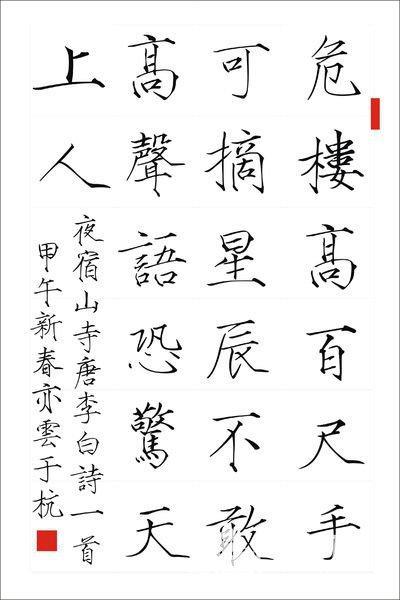 危樓高百尺手
可摘星辰不敢
高聲語恐驚天
上人
夜宿山寺唐李白詩一首
甲午新春亦雲于杭